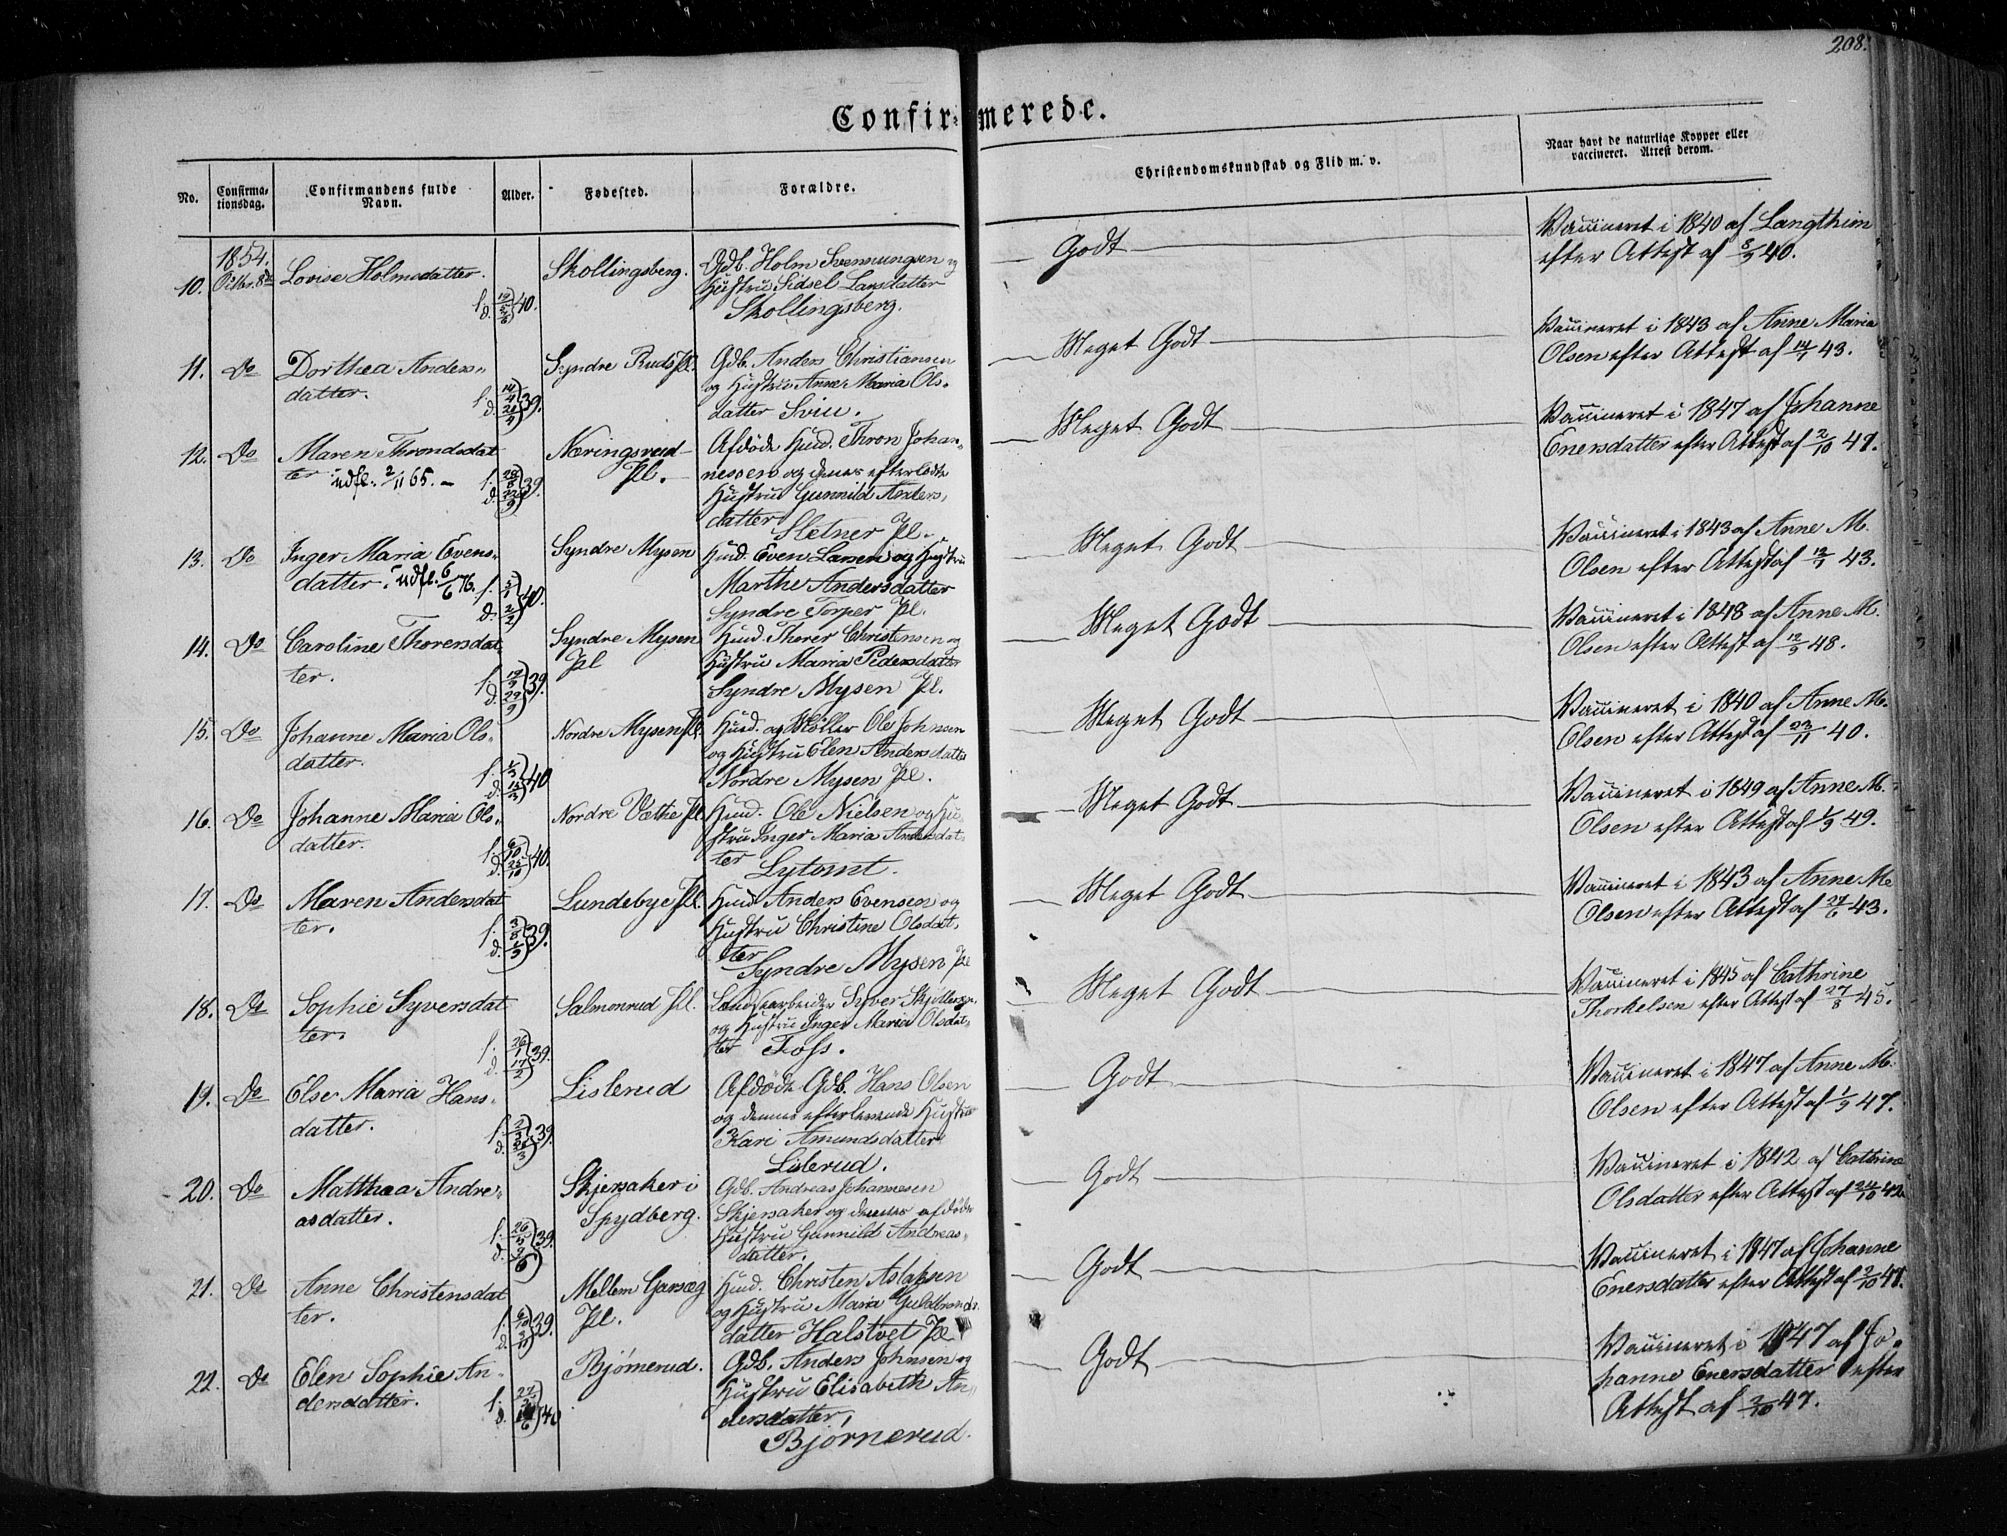 208.
Confirmerede.
No.
Confirma-
tionsdag.
Confirmandens fulde
Navn.
Alder.
Fødested.
Forældre.
Christendomskundskab og Flid m. v.
Naar havt de naturlige Kopper eller
vaccineret. Attest derom.
1854.
10. Octbr. 8de Lovise Holmsdatter. Skollingsberg. Gdb. Holm Svennungsen og
f. d. 40. Hustru Sidsel Larsdatter
Skollingsberg.
Godt
Vaccineret i 1840 af Langthim
efter Attest af 8/9 40.
11. Do Dorthea Anders- Syndre Ruds Pl. Gdb. Anders Christiansen
datter. f. 14/4 d. 21/4 39. og Hustru Anne Maria Ols-
datter Sviu.
Meget Godt
Vaccineret i 1843 af Anne Maria
Olsen efter Attest af 14/7 43.
12. Do Maren Throndsdat Næringsrud Afdöde Huusd. Thron Johan-
ter udfl. 2/11 65. f. d. 39. Pl. nessen og dennes efterladte
Hustru Gunnild Anders-
datter Sletner Pl.
Meget Godt
Vaccineret i 1847 af Johanne
Enersdatter efter Attest af 2/10 47.
13. Do Inger Maria Evens- Syndre Mysen Huusd. Even Larsen og Hustru
datter. udfl. 6/6 76. f. d. 2/2 40. Marthe Andersdatter
Syndre Torper Pl.
Meget Godt
Vaccineret i 1843 af Anne M.
Olsen efter Attest af 12/7 43.
14. Do Caroline Thorersdat Syndre Mysen Huusd. Thorer Christensen og
ter. f. d. 29/9 39. Pl Hustru Maria Pedersdatter
Syndre Mysen Pl.
Meget Godt
Vaccineret i 1848 af Anne M.
Olsen efter Attest af 12/9 48.
15. Do Johanne Maria Ols- Nordre Mysen Pl. Huusd. og Møller Ole Johnsen
datter. f. d. 40 og Hustru Elen Andersdatter
Nordre Mysen Pl.
Meget Godt
Vaccineret i 1840 af Anne M.
Olsen efter Attest af 23/11 40.
16. Do Johanne Maria Ols- Nordre Væthe Pl. Huusd. Ole Nielsen og Hu-
datter. f. 6/10 d. 25/10 40. stru Inger Maria
ter Lytomt.
Meget Godt
Vaccineret i 1849 af Anne M.
Olsen efter Attest af 1/9 49.
17. Do Maren Andersdat Lundebye Pl. Huusd. Anders Evensen og
ter. f. 3/8 d. 1/9 39. Hustru Christine Olsdat-
ter Syndre Mysen Pl
Meget Godt
Vaccineret i 1843 af Anne M.
Olsen efter Attest af 27/6 43.
18. Do Sophie Syversdat Salmonrud Pl. Syver
ter. f. 26/1 d. 17/2 39. og Hustru Inger Maria Olsdat-
ter Foss.
Meget Godt
Vaccineret i 1845 af Cathrine
Thorkelsen efter Attest af 27/8 45.
19. Do Else Maria Hans- Lislerud Afdöde Gdb. Hans Olsen
datter. f. 2/3 d. 39. og dennes efterlevende Hustru
Kari Amundsdatter
Lislerud.
Godt
Vaccineret i 1847 af Anne M.
Olsen efter Attest af 1/9 47.
20. Do Matthea Andre- Skjersaker i Gdb. Andreas Johannesen
asdatter. f. d. 39. Spydberg. Skjersaker og dennes afdöde
Hustru Gunnild Andreas-
datter.
Godt
Vaccineret i 1842 af Cathrine
Olsdatter efter Attest af 24/10 42.
21. Do Anne Christensdat Mellem Garseg Huusd. Christen Aslaksen
ter. f. d. 39. Pl. og Hustru Maria Guldbrands-
datter Halstvet Pl.
Godt
Vaccineret i 1847 af Johanne
Enersdatter efter Attest af 2/10 47.
22. Do Elen Sophie An- Bjørnerud. Gdb. Anders Johnsen og
dersdatter. f. d. 40 Hustru Elisabeth An-
dersdatter,
Bjørnerud.
Godt
Vaccineret i 1847 af Jo-
hanne Enersdatter efter
Attest af 2/10 47.